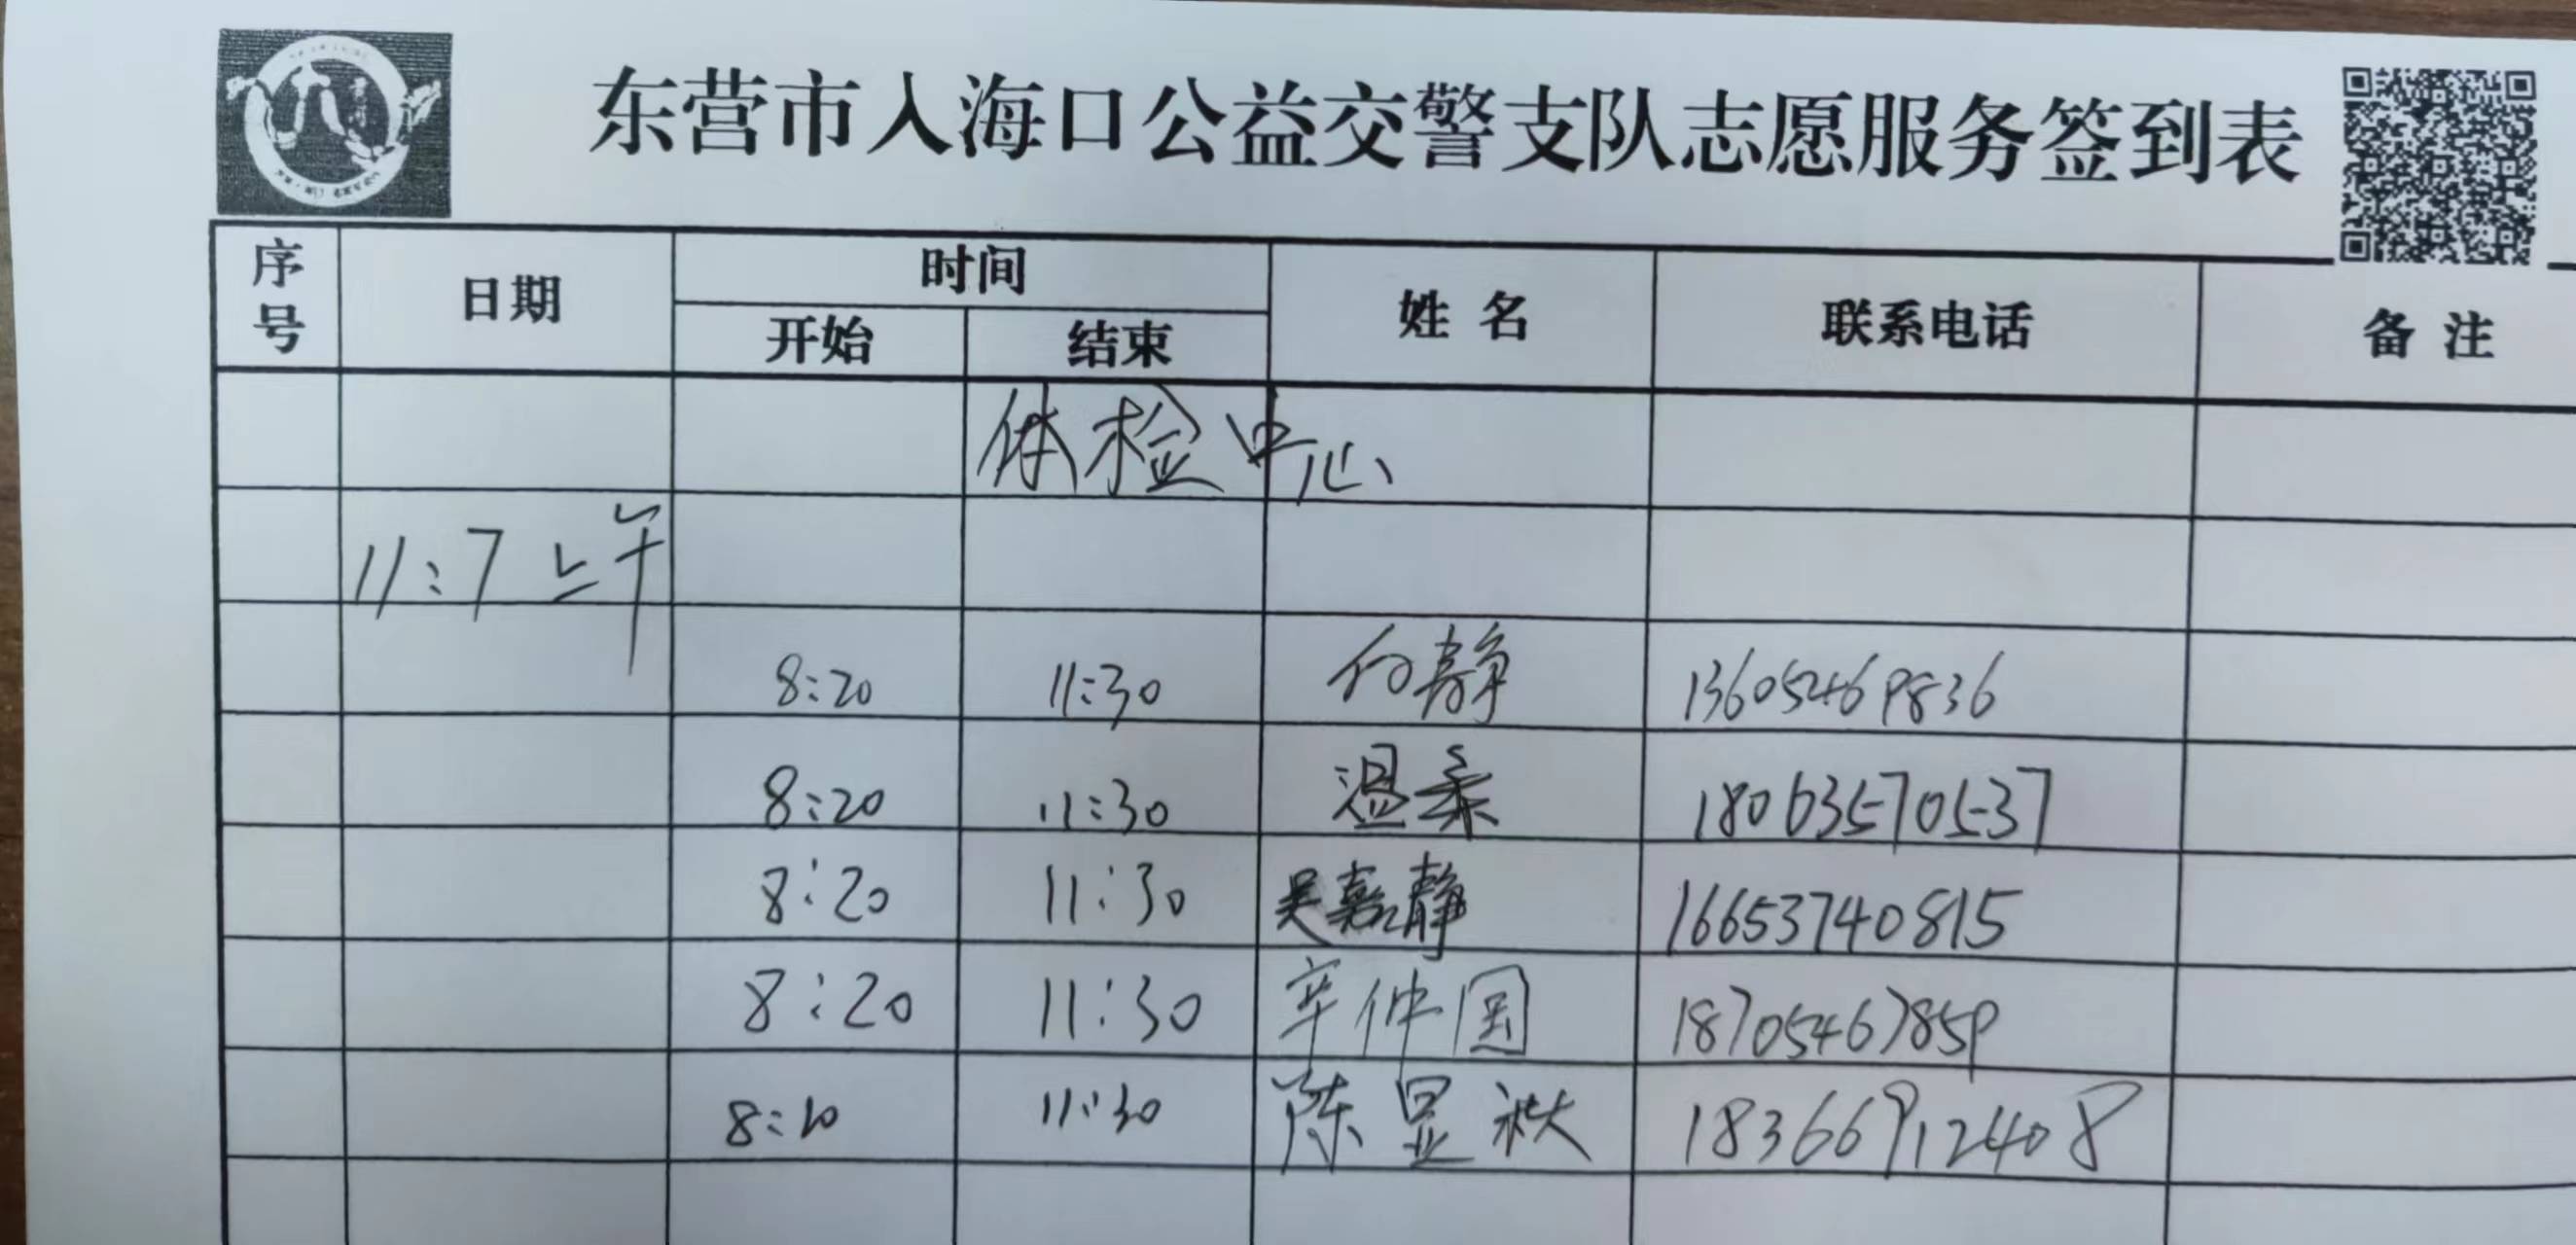 东营市入海口公益交警支队志愿服务签到表
序号 日期 时间 姓名 联系电话 备注
开始 结束
体检中心
11:7 上午
8:20 11:30 付静 13605469836
8:20 11:30 温柔 18063570537
8:20 11:30 吴嘉静 16653740815
8:20 11:30 辛仲国 18705467859
8:20 11:30 陈显秋 18366912408